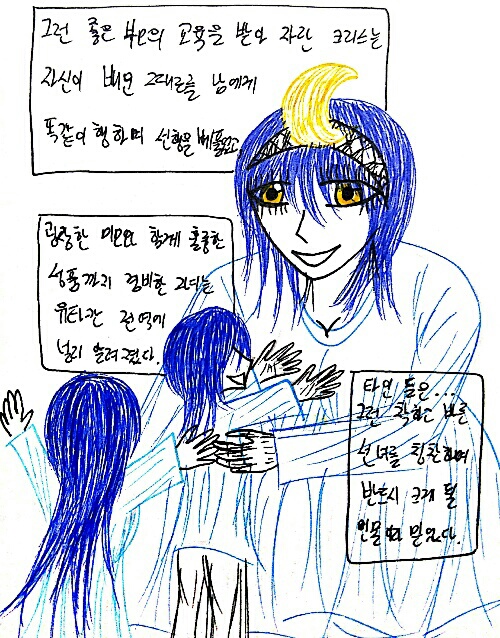 그런 좋은 부모의 교육을 받아 자란 크리스는
자신이 배운 그대로를 남에게
똑같이 행하며 선행을 베풀었고
굉장한 미모와 함께 훌륭한
성품까지 겸비한 그녀는
유타칸 전역에
널리 알려졌다.
타인 들은...
그런 착하고 바른
소녀를 칭찬하며
반드시 크게 될
인물이라 믿었다.